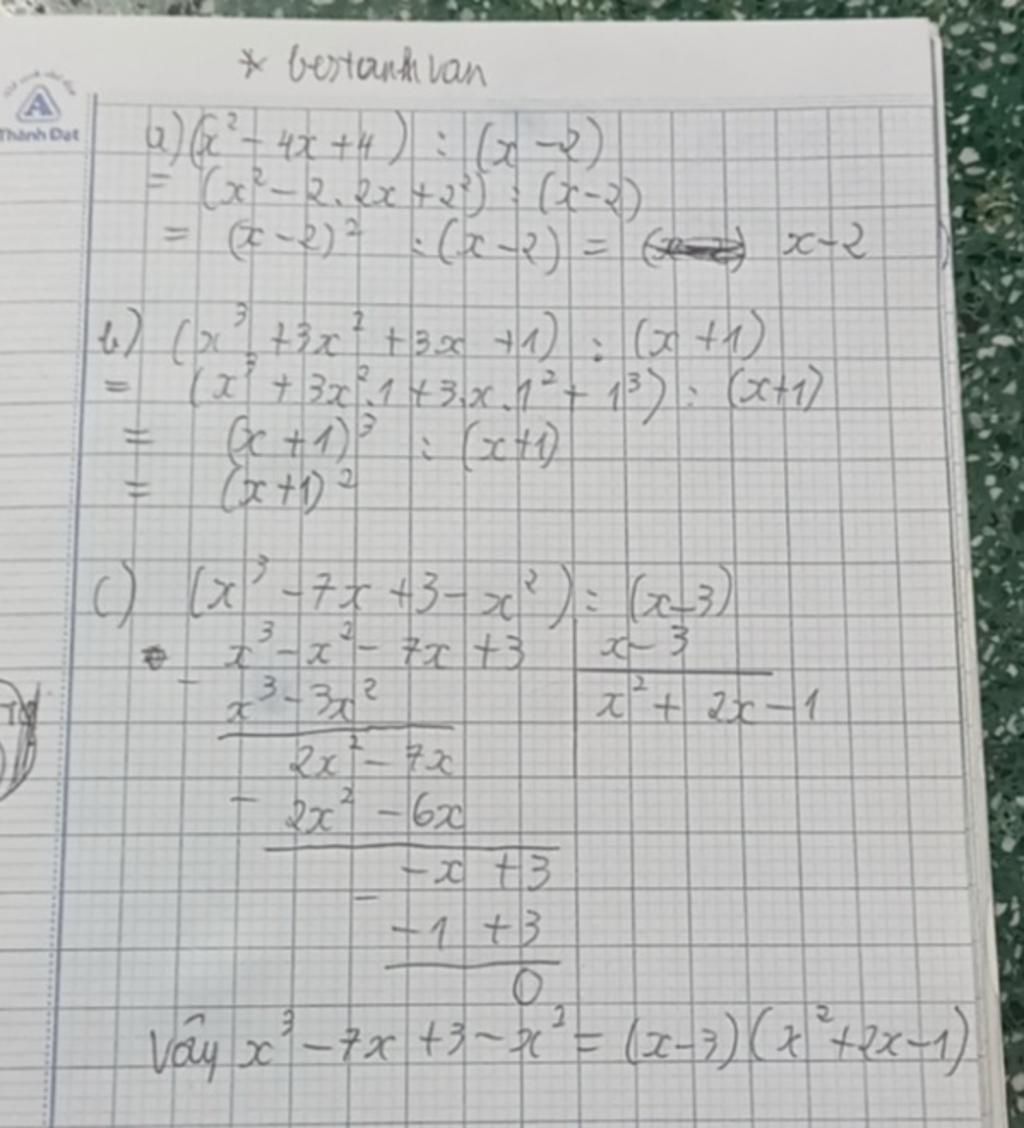 * bertanhvan
A
Thành Đạt
a) (x² - 4x + 4) : (x - 2)
= (x² - 2.2x + 2²) : (x - 2)
= (x - 2)² : (x - 2) = x - 2
b) (x³ + 3x² + 3x + 1) : (x + 1)
= (x³ + 3x².1 + 3.x.1² + 1³) : (x + 1)
= (x + 1)³ : (x + 1)
= (x + 1)²
c) (x³ - 7x + 3 - x²) : (x - 3)
x³ - x² - 7x + 3 | x - 3
- x³ - 3x² | x² + 2x - 1
2x² - 7x
- 2x² - 6x
-x + 3
- -1 + 3
0
Vậy x³ - 7x + 3 - x² = (x - 3)(x² + 2x - 1)